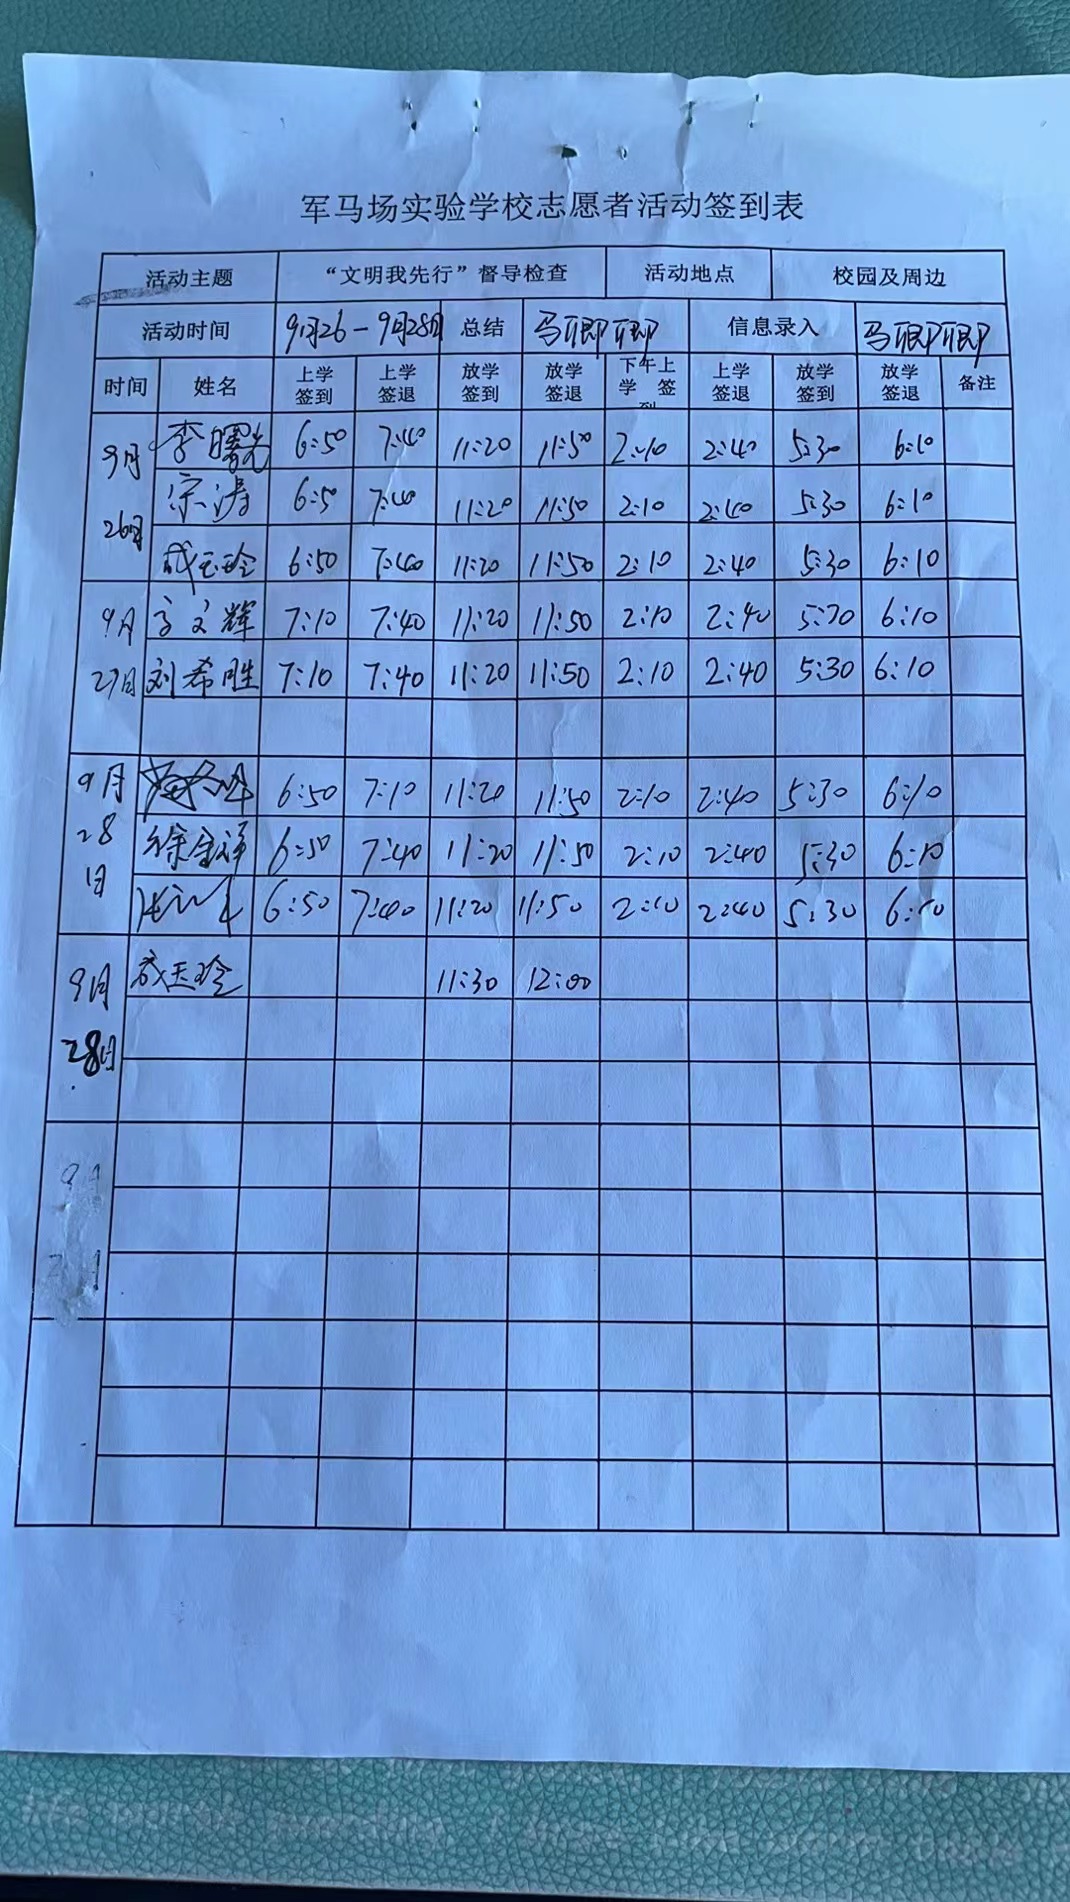 军马场实验学校志愿者活动签到表
活动主题 “文明我先行”督导检查 活动地点 校园及周边
活动时间 9月26-9月28日 总结 马卿卿 信息录入 马卿卿
时间 姓名 上学签到 上学签退 放学签到 放学签退 下午上学签到 上学签退 放学签到 放学签退 备注
9月26日 李曙光 6:50 7:40 11:20 11:50 2:10 2:40 5:30 6:10
宗涛 6:50 7:40 11:20 11:50 2:10 2:40 5:30 6:10
6:50 7:40 11:20 11:50 2:10 2:40 5:30 6:10
9月27日 文辉 7:10 7:40 11:20 11:50 2:10 2:40 5:30 6:10
刘希胜 7:10 7:40 11:20 11:50 2:10 2:40 5:30 6:10
9月28日 6:50 7:10 11:20 11:50 2:10 2:40 5:30 6:10
徐金祥 6:50 7:40 11:20 11:50 2:10 2:40 5:30 6:10
6:50 7:40 11:20 11:50 2:10 2:40 5:30 6:10
9月28日 玉玲 11:30 12:00